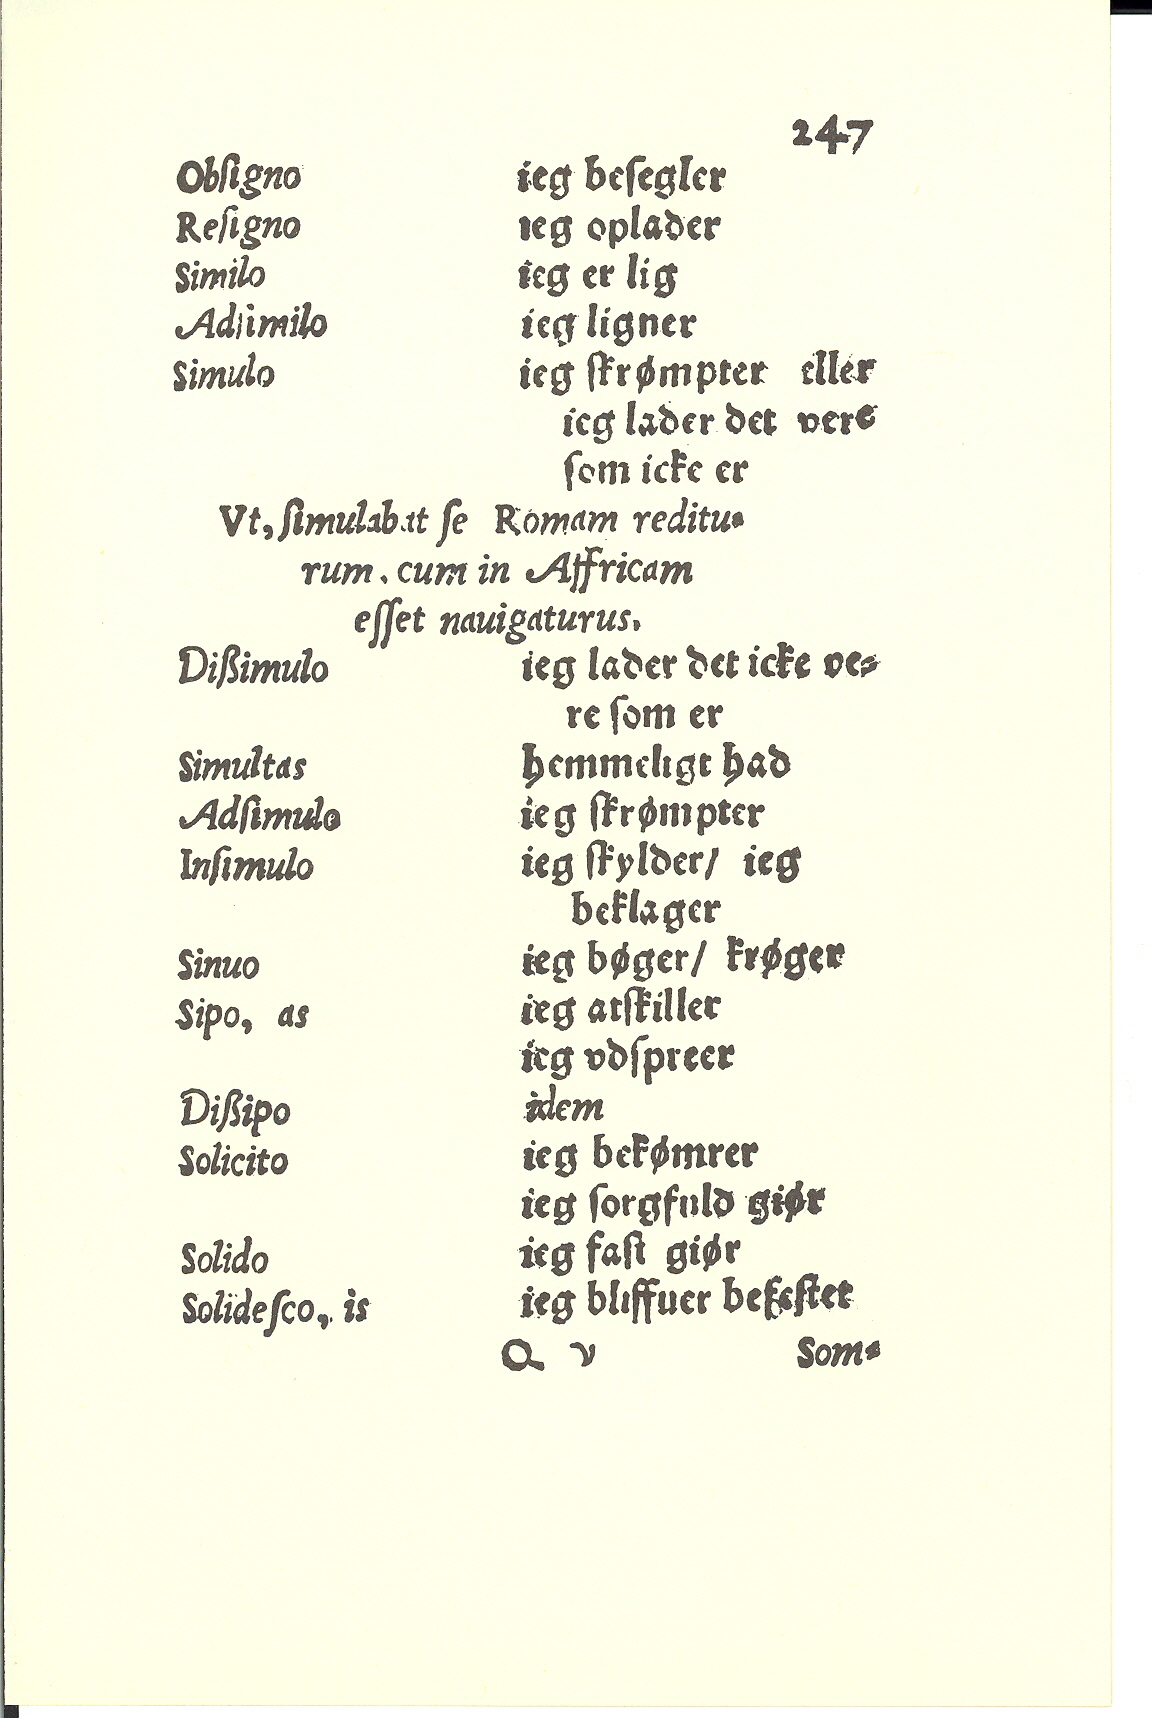 247
Obſigno ieg beſegler
Reſigno ieg oplader
Similo ieg er lig
Adſimilo ieg ligner
Simulo ieg ſkrømpter eller
ieg lader det vere
ſom icke er
Vt, ſimulabat ſe Romam reditu-
rum, cum in Affricam
eſſet nauigaturus.
Dißimulo ieg lader det icke ve-
re ſom er
Simultas hemmeligt had
Adſimulo ieg ſkrømpter
Inſimulo ieg ſkylder/ ieg
beklager
Sinuo ieg bøger/ krøger
Sipo, as ieg atſkiller
ieg vdſpreer
Dißipo idem
Solicito ieg bekømrer
ieg ſorgfuld giør
Solido ieg faſt giør
Solideſco, is ieg bliffuer befeſtet
Q v Som-